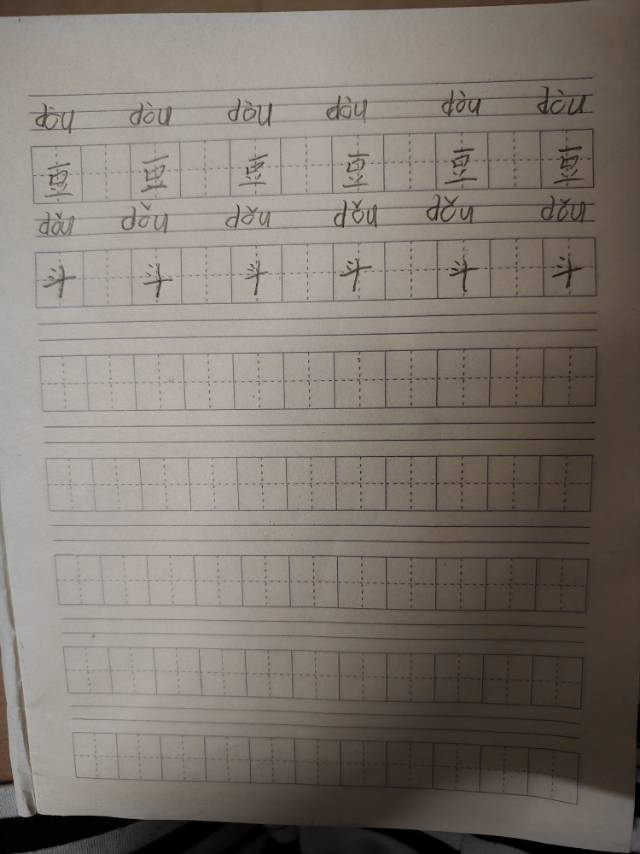 dòu dòu dòu dòu dòu dòu
豆 豆 豆 豆 豆 豆
dǒu dǒu dǒu dǒu dǒu dǒu
斗 斗 斗 斗 斗 斗